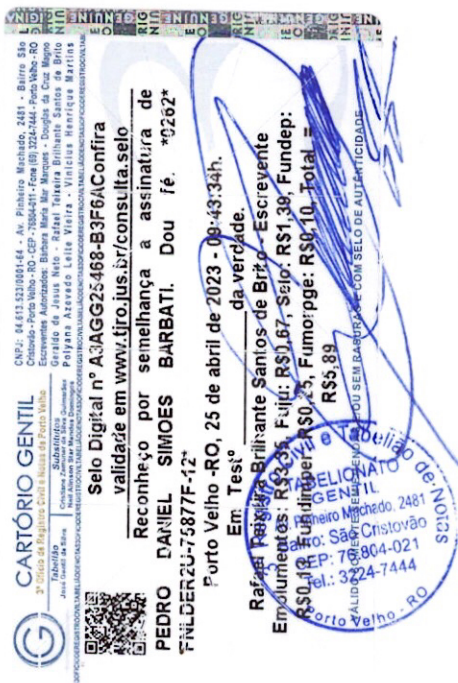 CARTÓRIO GENTIL
3º Ofício de Registro Civil e Notas de Porto Velho
Tabelião
José Gentil da Silva
Substitutos
CNPJ: 04.613.523/0001-64 - Av. Pinheiro Machado, 2481 - Bairro São
Cristovão - Porto Velho - RO - CEP - 76804-011 - Fone (69) 3224-7444 - Porto Velho - RO
Escreventes Autorizados: Bárbara Maria Mar Marques - Douglas da Cruz Magno
Geraldo de Jesus Neto - Rafael Teixeira Brilhante Santos de Brito
Polyana Azevedo Leite Vieira - Vinicius Henrique Martins
Selo Digital nº A3AGG25468-B3F6AConfira
validade em www.tjro.jus.br/consulta.selo
Reconheço por semelhança a assinatura de
PEDRO DANIEL SIMOES BARBATI. Dou fé. *0262*
Porto Velho -RO, 25 de abril de 2023 - 09:43:34h.
Em Testº da verdade.
Rafael Teixeira Brilhante Santos de Brito - Escrevente
Emolumentos: R$3,35, Fuju: R$0,67, Selo: R$1,39, Fundep:
Fumorpge: R$0,10, Total =
R$5,89
VÁLIDO SOMENTE SEM EMENDAS OU SEM RASURAS E COM SELO DE AUTENTICIDADE
Civil e Tabelião de Notas
GENTIL
Pinheiro Machado, 2481
Bairro: São Cristovão
CEP: 76.804-021
Tel.: 3224-7444
Porto Velho - RO